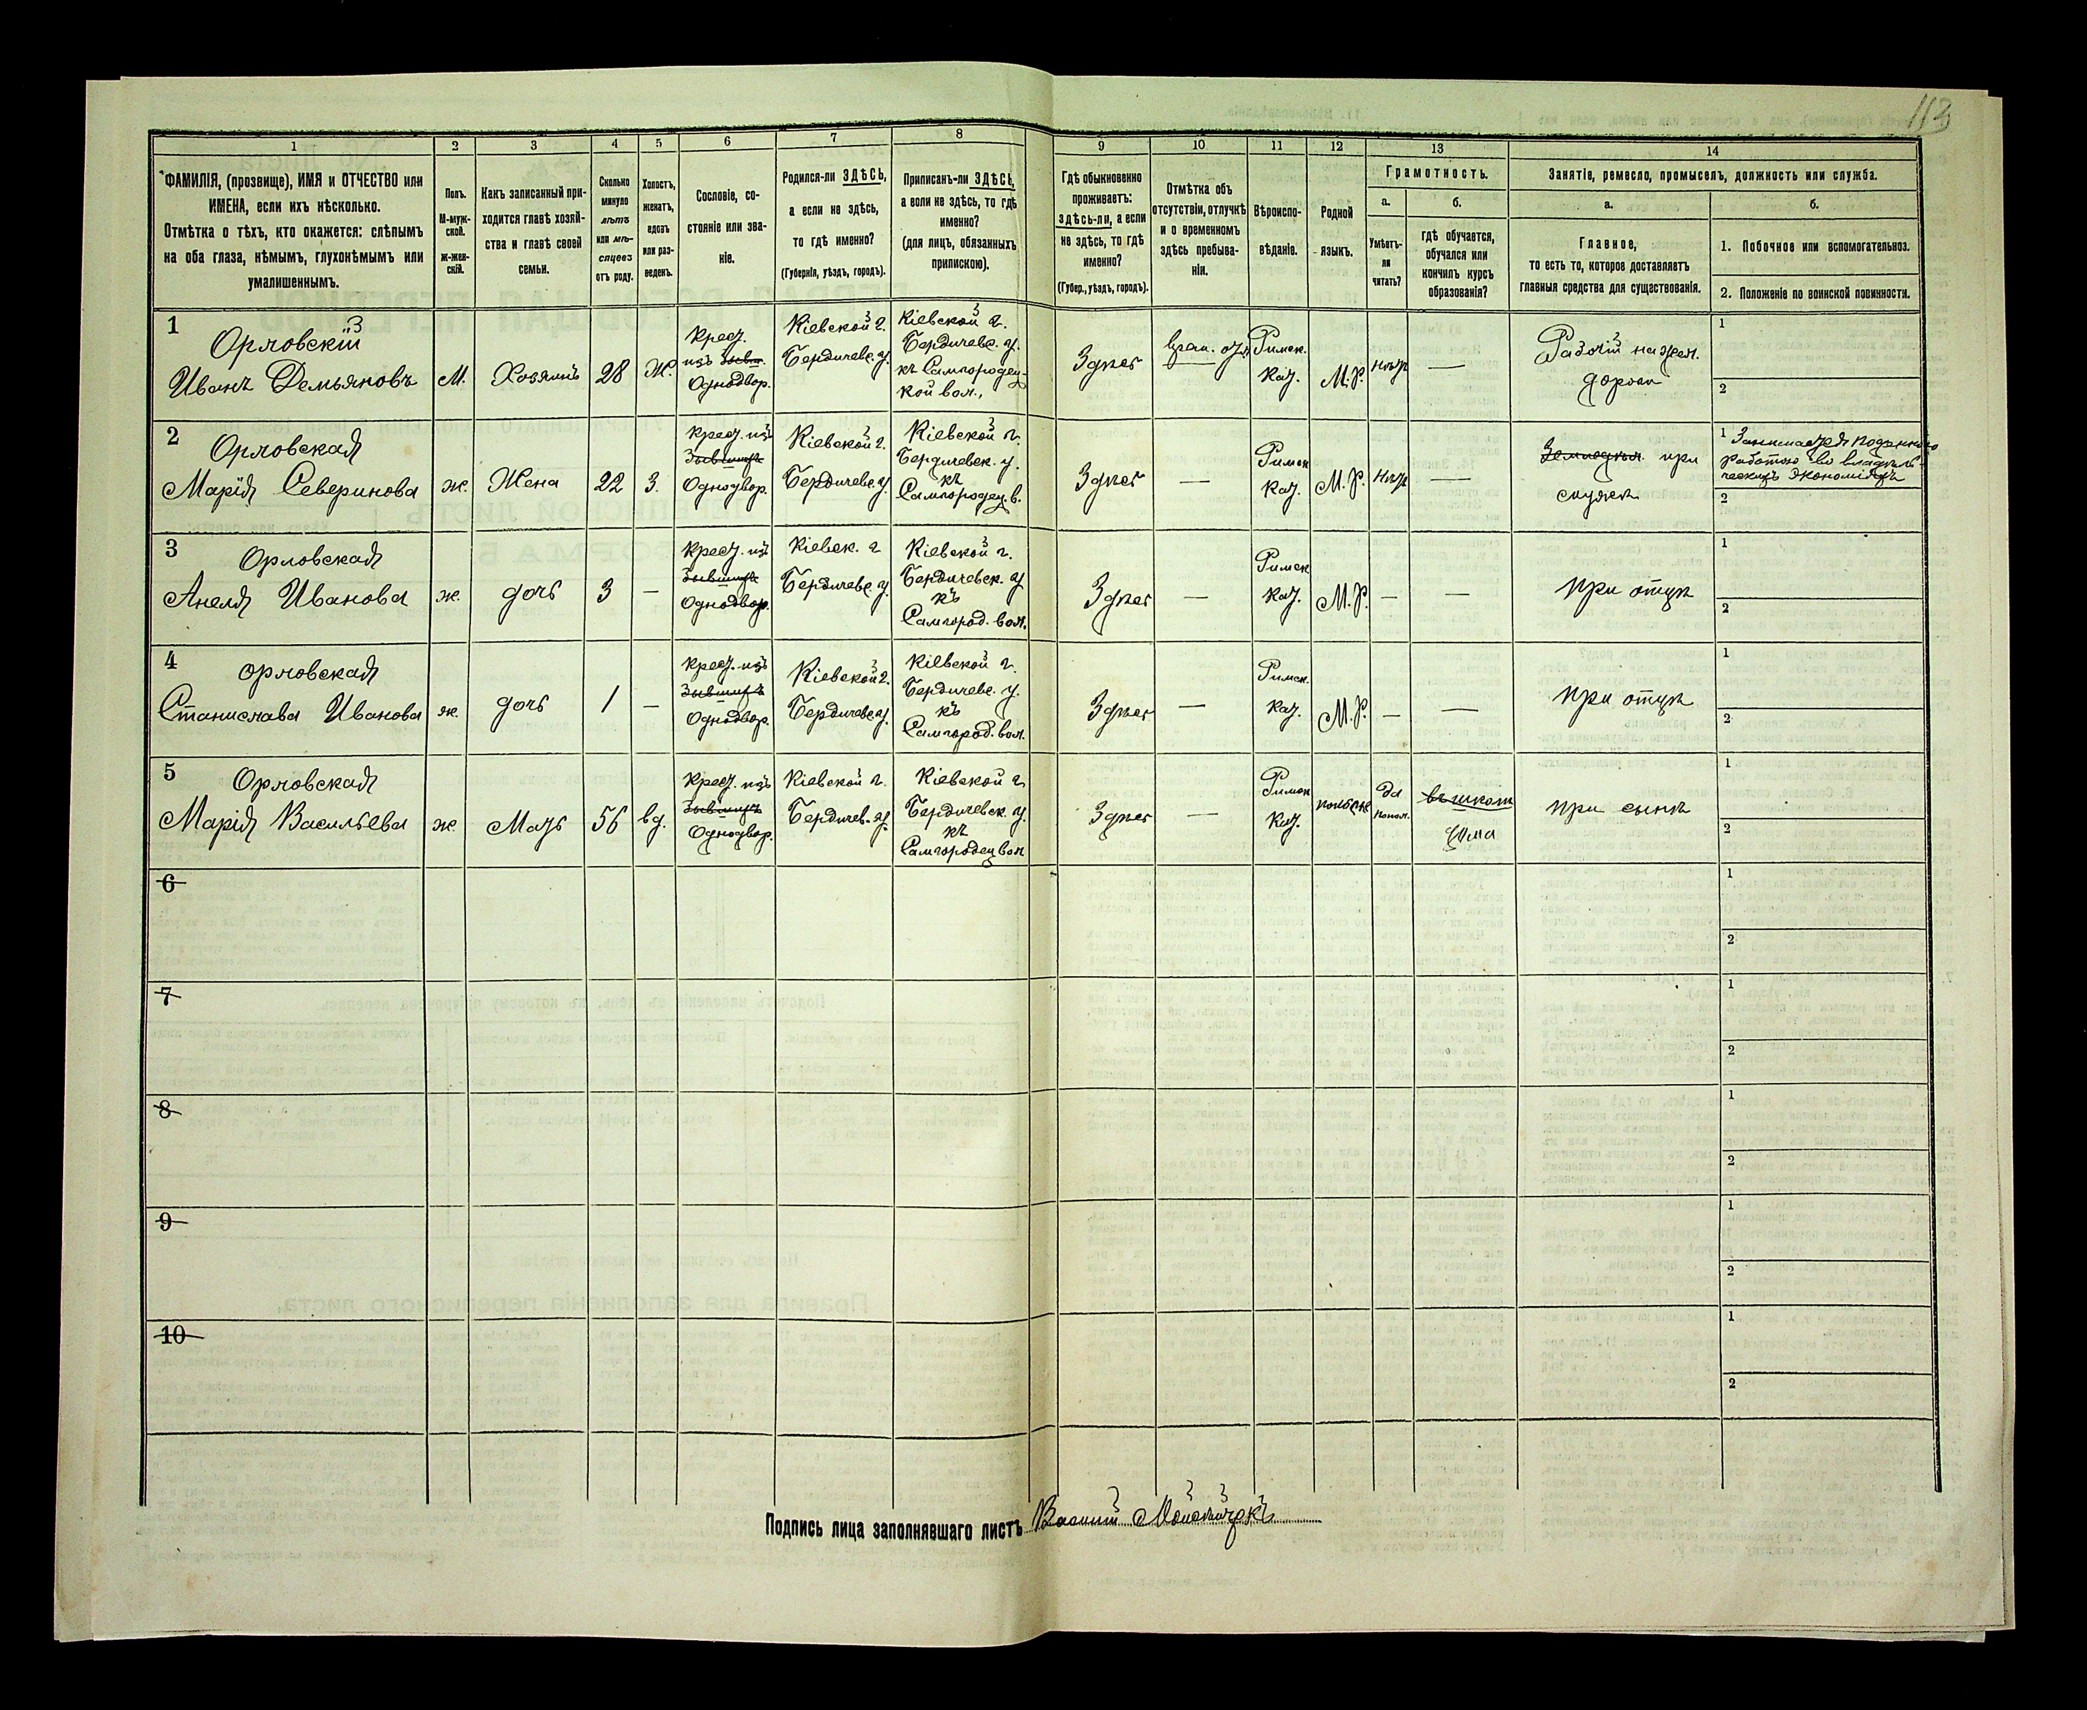 113
1
2
3
4
5
6
7
8
9
10
11
12
13
14
ФАМИЛІЯ, (прозвище), ИМЯ и ОТЧЕСТВО или
ИМЕНА, если ихъ нѣсколько.
Отмѣтка о тѣхъ, кто окажется: слѣпымъ
на оба глаза, нѣмымъ, глухонѣмымъ или
умалишеннымъ.
Полъ.
М-муж-
ской.
ж-жен-
скій.
Какъ записанный при-
ходится главѣ хозяй-
ства и главѣ своей
семьи.
Сколько
минуло
лѣтъ
или мѣ-
сяцевъ
отъ роду.
Холостъ,
женатъ,
вдовъ
или раз-
веденъ.
Сословіе, со-
стояніе или зва-
ніе.
Родился-ли ЗДѢСЬ,
а если не здѣсь,
то гдѣ именно?
(Губернія, уѣздъ, городъ).
Приписанъ-ли ЗДѢСЬ,
а если не здѣсь, то гдѣ
именно?
(для лицъ, обязанныхъ
припискою).
Гдѣ обыкновенно
проживаетъ:
здѣсь-ли, а если
не здѣсь, то гдѣ
именно?
(Губер., уѣздъ, городъ).
Отмѣтка объ
отсутствіи, отлучкѣ
и о временномъ
здѣсь пребыва-
ніи.
Вѣроиспо-
вѣданіе.
Родной
языкъ.
Грамотность.
а.
Умѣетъ-
ли
читать?
б.
гдѣ обучается,
обучался или
кончилъ курсъ
образованія?
Занятіе, ремесло, промыселъ, должность или служба.
а.
Главное,
то есть то, которое доставляетъ
главныя средства для существованія.
б.
1. Побочное или вспомогательное.
2. Положеніе по воинской повинности.
1
Орловскій
Иванъ Демьяновъ
М.
Хозяинъ
28
Ж.
Крест.
изъ бывш.
Однодвор.
Кіевской г.
Бердичевс. у.
Кіевской г.
Бердичевс. у.
къ Самгородец-
кой вол.,
Здѣсь
Римск.
Кат.
М.Р.
Нѣтъ
—
Рабочій на жел.
дороги
1
2
2
Орловская
Марія Северинова
ж.
Жена
22
З.
Крест. изъ
бывшихъ
Однодвор.
Кіевской г.
Бердичевс. у.
Кіевской г.
Бердичевск. у.
къ
Самгородец. в.
Здѣсь
—
Римск
Кат.
М.Р.
Нѣтъ
—
при
1 Занимается поденною
работою во владѣль-
ческихъ экономіяхъ
2
3
Орловская
Анеля Иванова
ж.
дочь
3
—
Крест. изъ
бывшихъ
Однодвор.
Кіевск. г
Бердичевс. у.
Кіевской г.
Бердичевск. у
къ
Самгород. вол.
Здѣсь
—
Римск
Кат.
М.Р.
—
—
при отцѣ
1
2
4
Орловская
Станислава Иванова
ж.
дочь
1
—
Крест. изъ
бывшихъ
Однодвор.
Кіевской г.
Бердичевс у.
Кіевской г.
Бердичевс. у.
къ
Самгород. вол.
Здѣсь
—
Римск.
Кат.
М.Р.
—
—
при отцѣ
1
2
5
Орловская
Марія Васильева
ж.
Мать
56
вд.
Крест. изъ
бывшихъ
Однодвор.
Кіевской г.
Бердичев. у.
Кіевской г
Бердичевск. у.
къ
Самгородец вол
Здѣсь
—
Римск
Кат.
польск
да
польс.
въ школѣ
дома
при сынѣ
1
2
6
1
2
7
1
2
8
1
2
9
1
2
10
1
2
Подпись лица заполнявшаго листъ